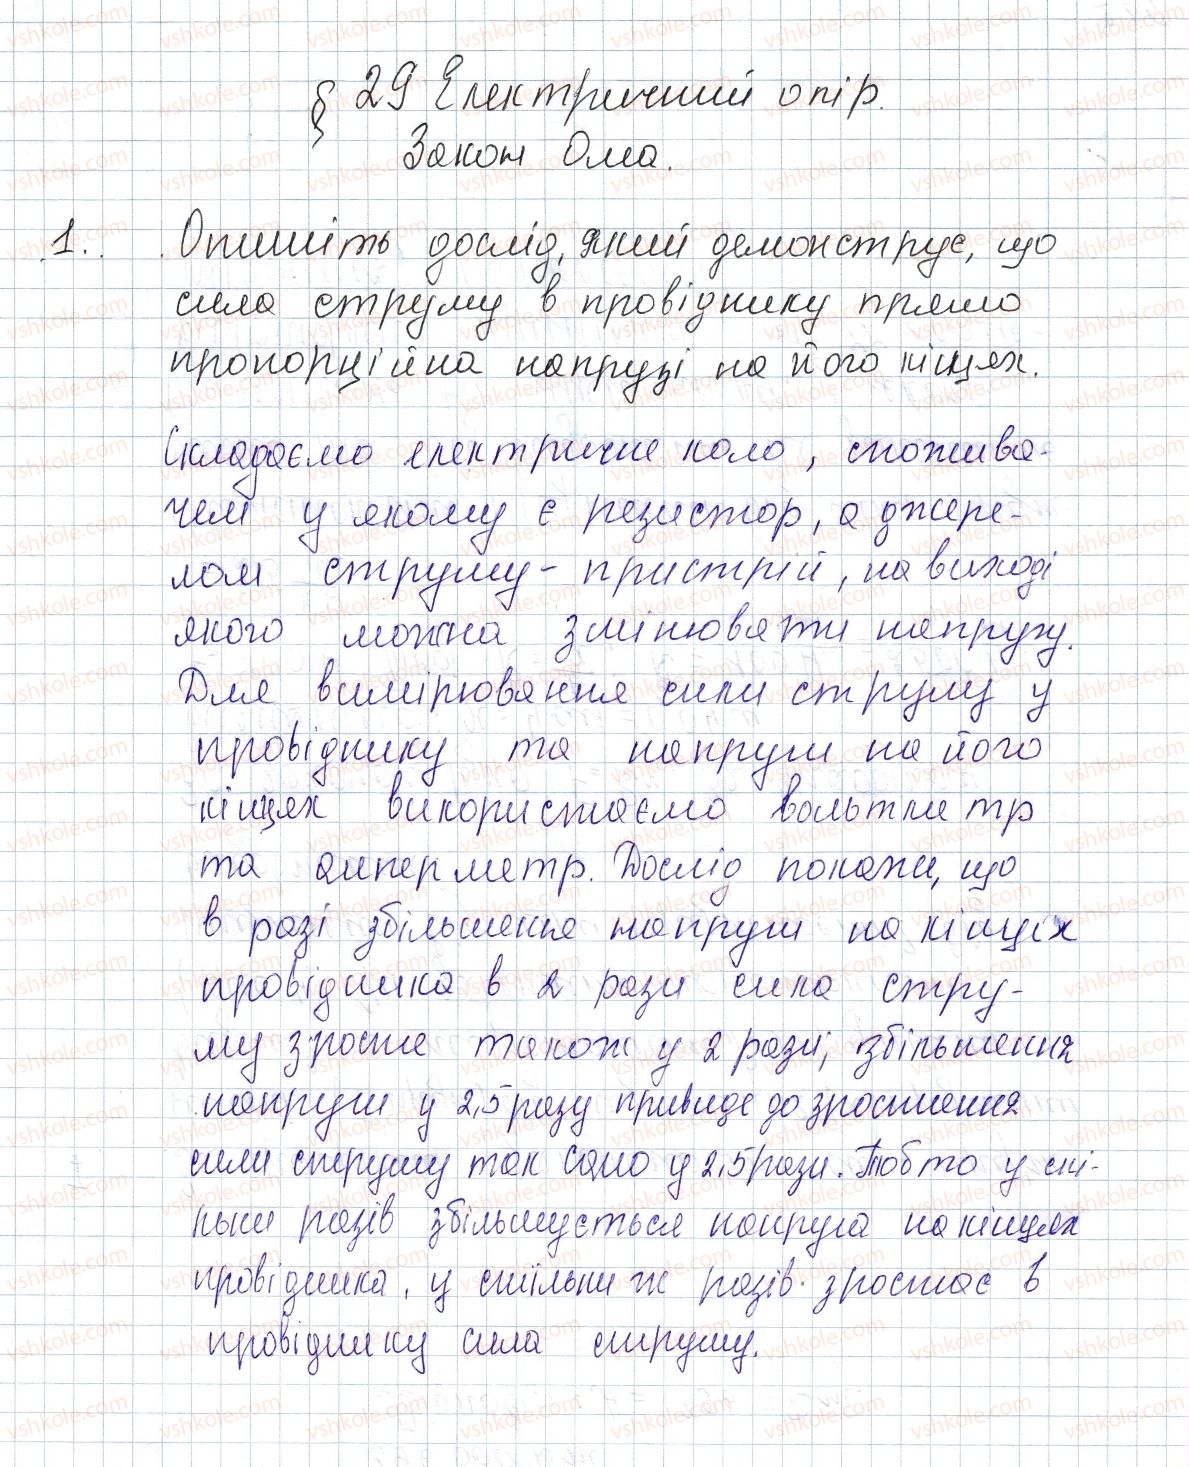 § 29 Електричний опір.
Закон Ома.
1. Опишіть дослід, який демонструє, що
сила струму в провіднику прямо
пропорційна напрузі на його кінцях.
Складаємо електричне коло, спожива-
чем у якому є резистор, а джере-
лом струму - пристрій, на виході
якого можна змінювати напругу.
Для вимірювання сили струму у
провіднику та напруги на його
кінцях використаємо вольтметр
та амперметр. Дослід покаже, що
в разі збільшення напруги на кінцях
провідника в 2 рази сила стру-
му зросте також у 2 рази, збільшення
напруги у 2,5 разу приведе до зростання
сили струму так само у 2,5 рази. Тобто у скі-
льки разів збільшується напруга на кінцях
провідника, у стільки ж разів зростає в
провіднику сила струму.